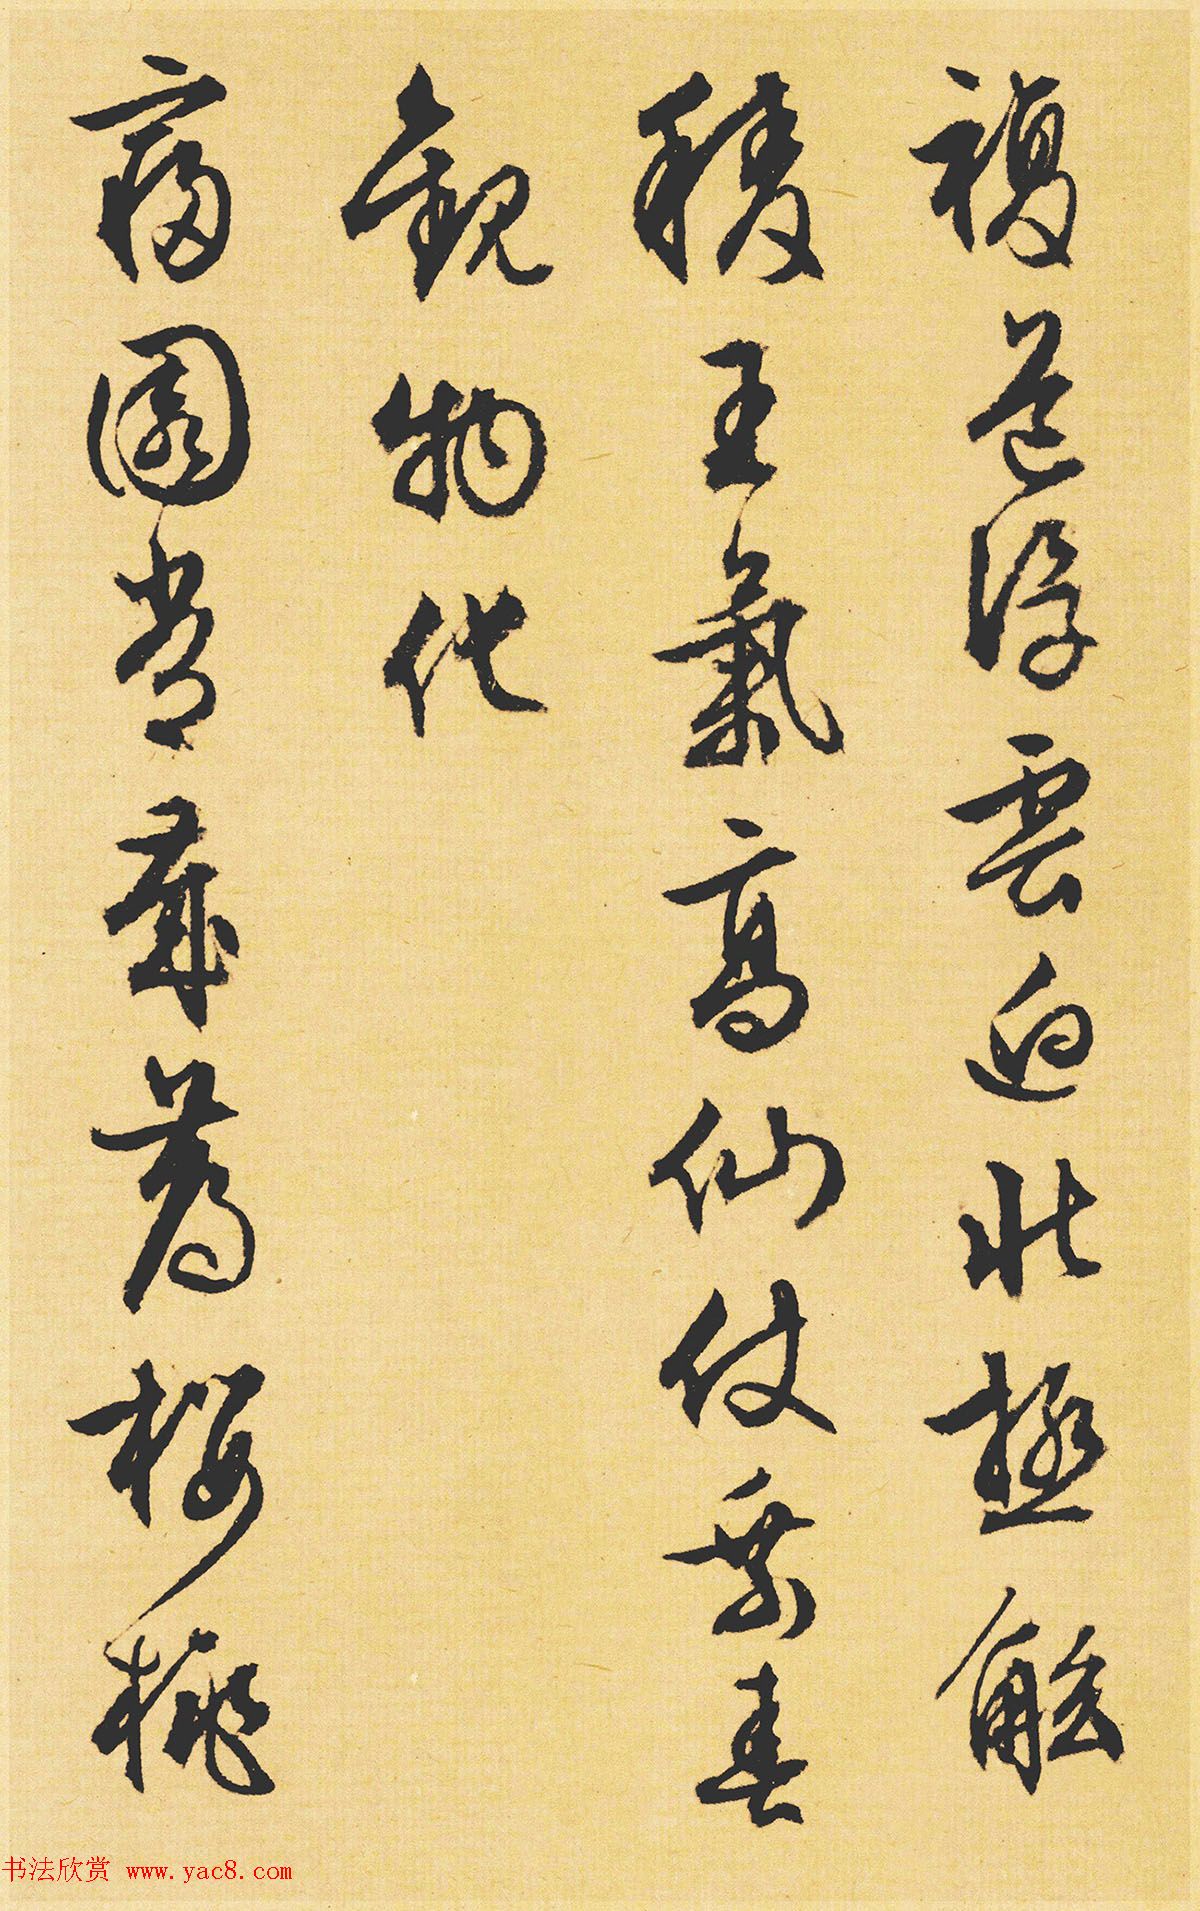 複道浮雲迫北極觚
稜王氣高仙仗乘春
觀物化
寢園常歲薦櫻桃
书法欣赏 www.yac8.com